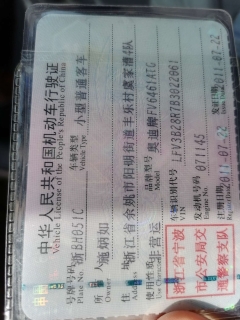 中华人民共和国机动车行驶证
Vehicle License of the People's Republic of China
号牌号码 浙BH051C 车辆类型 小型普通客车
Plate No. Vehicle Type
所有人 施炳如
Owner
住址 浙江省余姚市阳明街道丰乐村虞家漕4队
Address
使用性质 非营运 品牌型号 奥迪牌FV6461ATG
Use Character Model
浙江省宁波市公安局交通警察支队
车辆识别代号 LFV3B28R7B3022061
VIN
发动机号码 071145
Engine No.
注册日期 2011-07-22